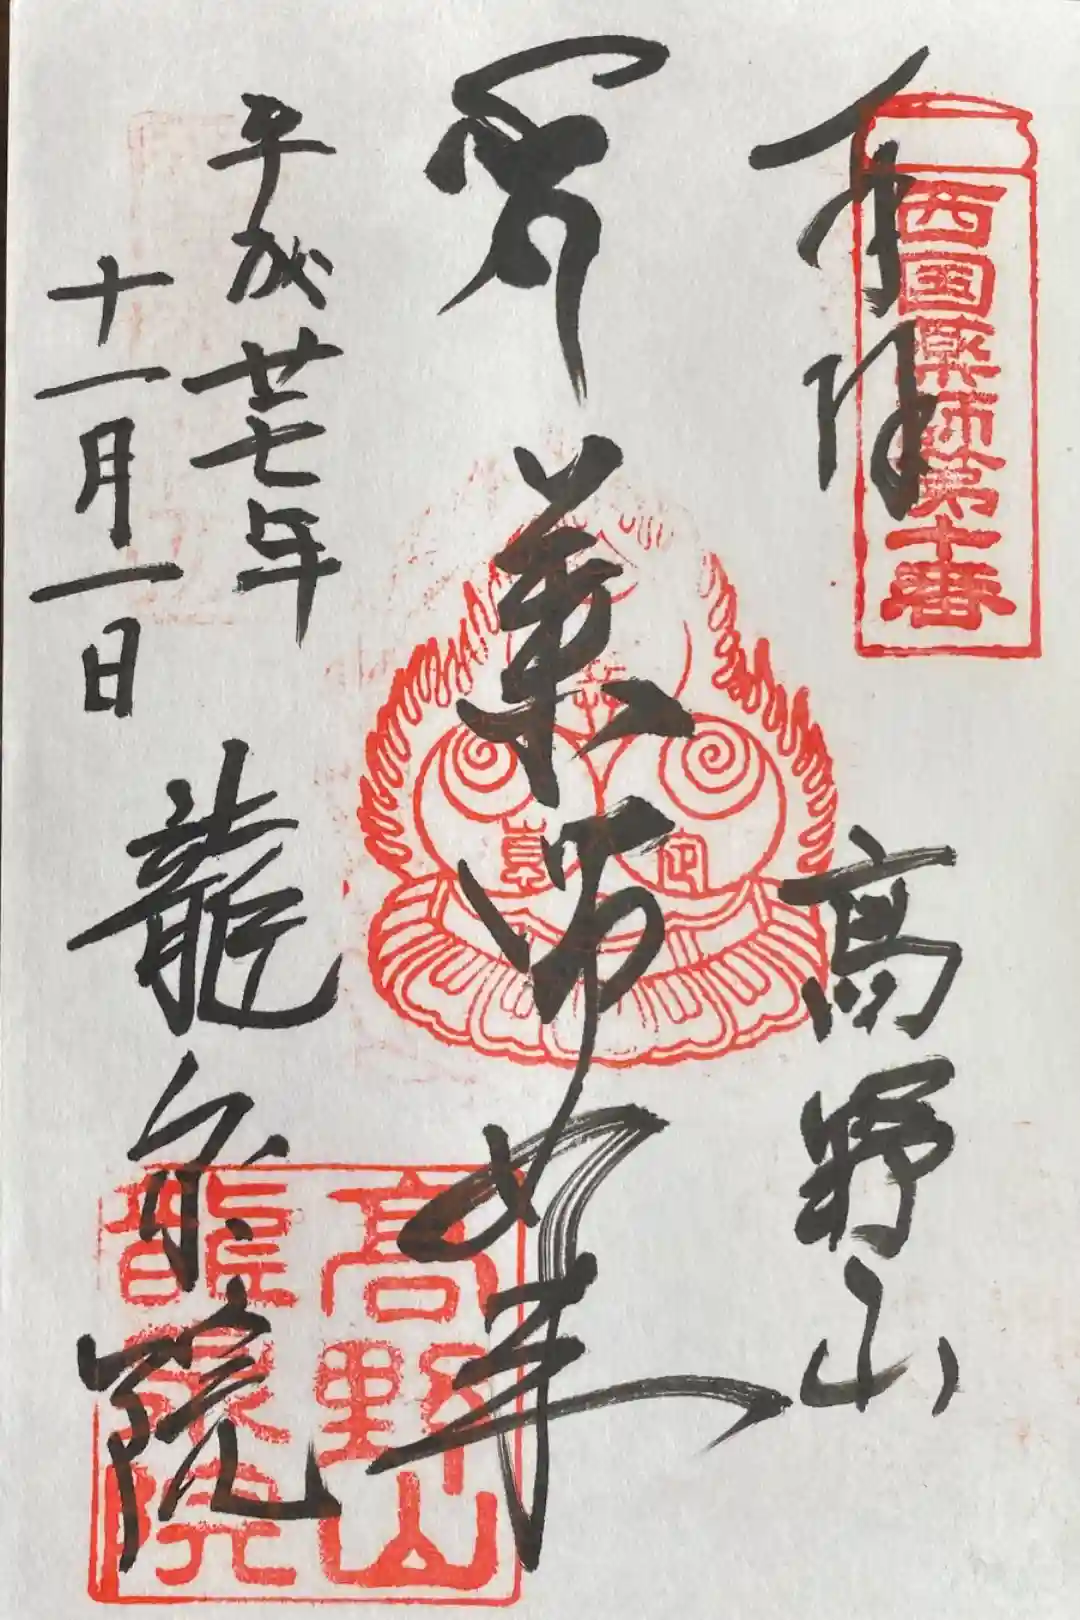 奉拝 高野山
西国薬師第十番
薬師如来
平成廿七年
十一月一日 龍泉院
高野山
龍泉院